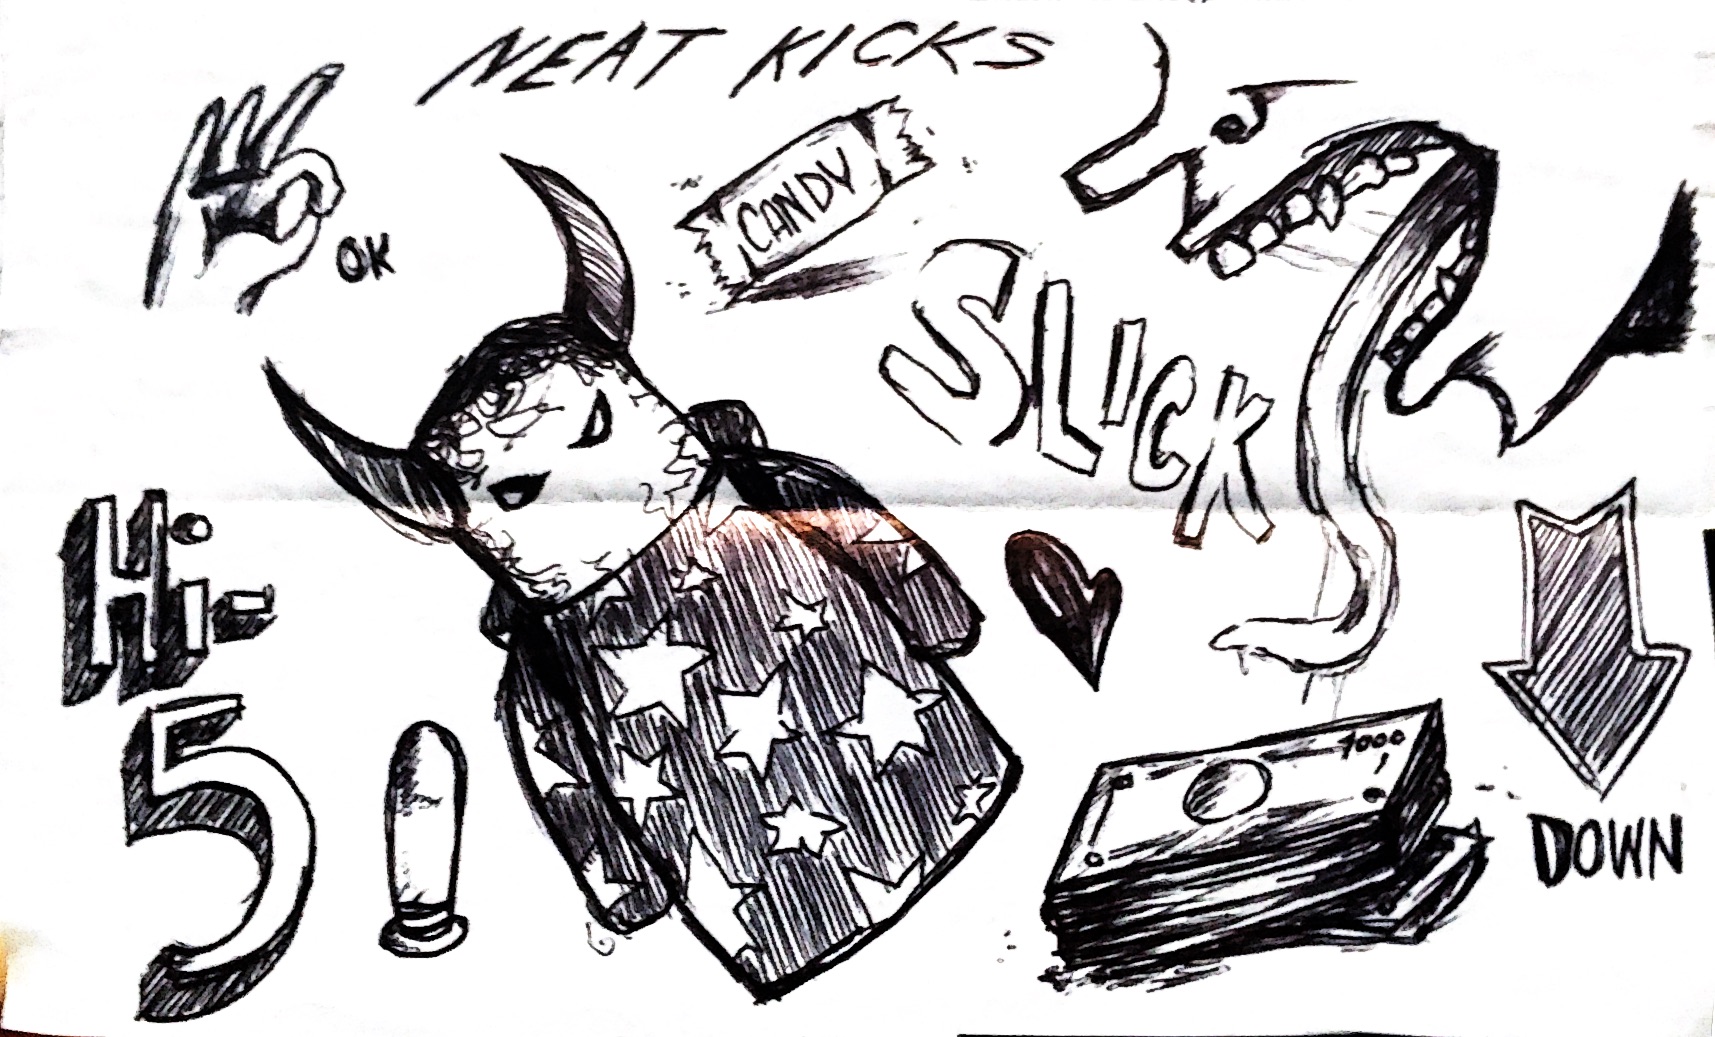 NEAT KICKS
OK
CANDY
SLICK
Hi-
5
1000
DOWN